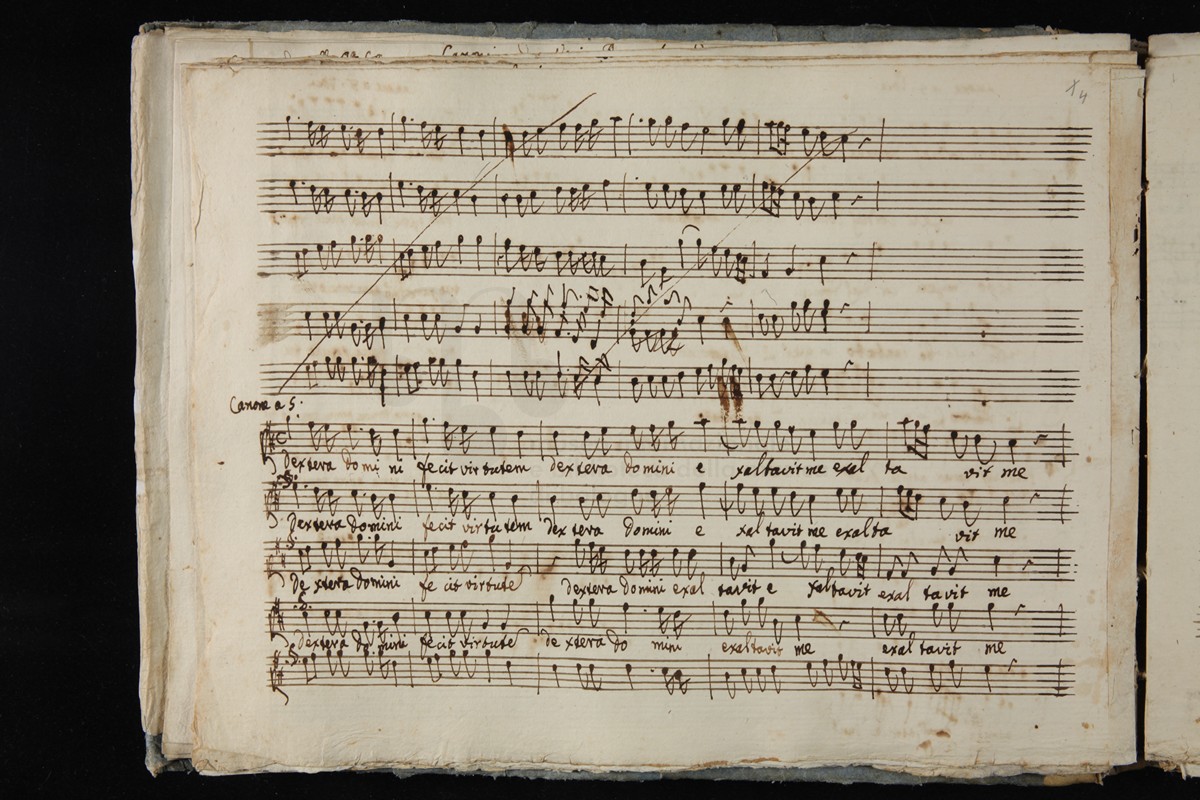 4
Canone a 5.
dextera domi ni fecit virtutem dextera domini e xaltavit me exal ta vit me
dextera domini fecit virtu tem dex tera domini e xal tavit me exalta vit me
de xtera domini fe cit virtute dextera domini exal tavit e xaltavit exal tavit me
dextera do mini fecit virtute de xtera do mini exaltavit me exal tavit me